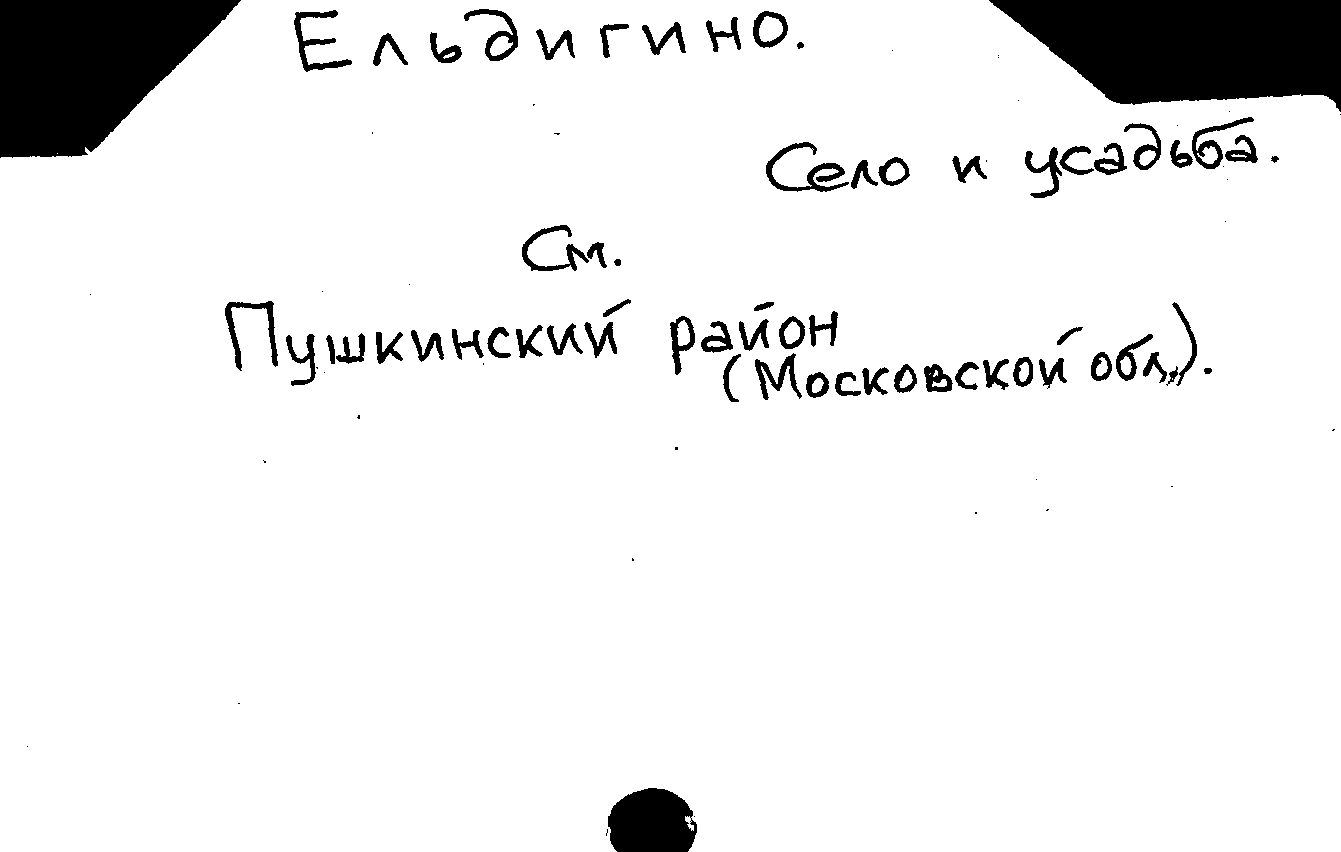 Ельдигино.
Село и усадьба.
См.
Пушкинский район
(Московской обл.).